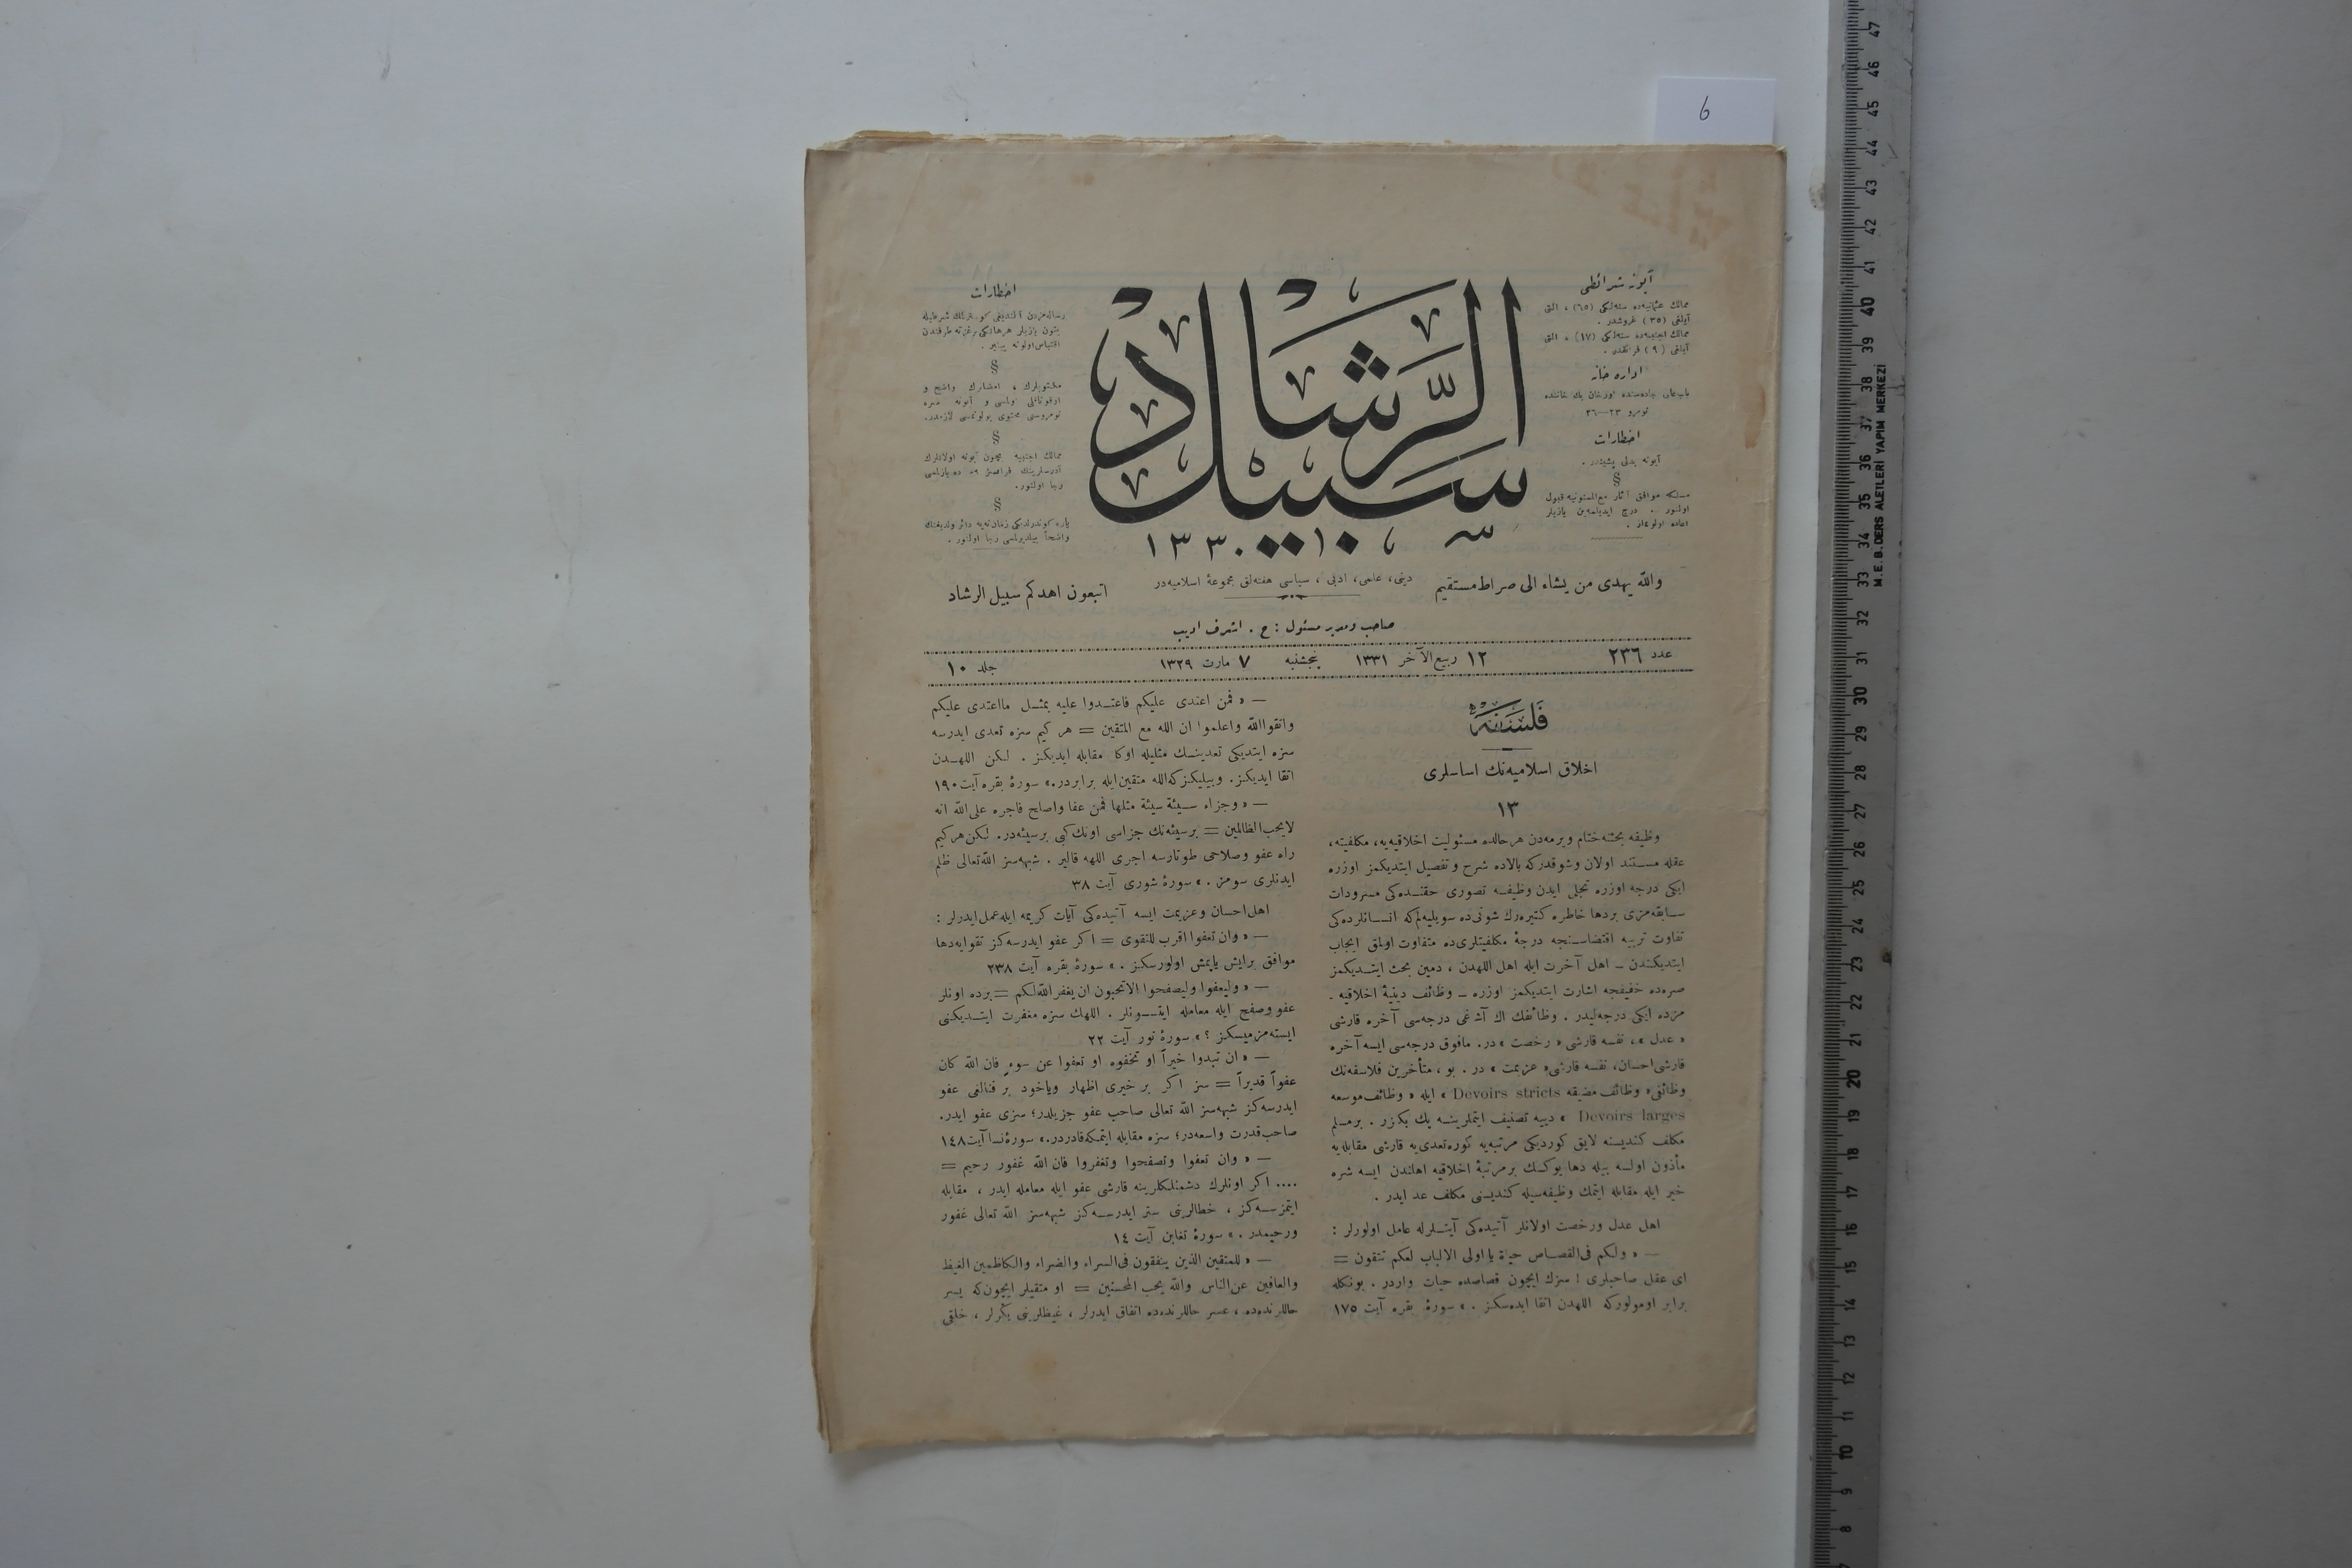 6
آبونه شرائطی
ممالك عثمانیه‌ده سنه‌لكی (٦٥) ، التی
آیلغی (٣٥) غروشدر .
ممالك اجنبیه‌ده سنه‌لكی (١٧) ، التی
آیلغی (٩) فرانقدر .
اداره خانه
باب عالی جاده‌سنده
نومرو ٢٣—٢٦
اخطارات
آبونه بدلی پشیندر .
§
مسلكه موافق آثار مع الممنونیه قبول
اولنور . درج ایدیلمه‌ین یازیلر
اعاده اولونماز .
سبیل الرشاد
١٣٣٠
اخطارات
§
§
§
والله یهدی من یشاء الی صراط مستقیم
دینی، علمی، ادبی ، سیاسی هفته‌لق مجموعهٔ اسلامیه‌در
اتبعون اهدكم سبیل الرشاد
صاحب ومدیر مسئول : ح . اشرف ادیب
عدد ٢٣٦
١٢ ربیع الآخر ١٣٣١
پنجشنبه
٧ مارت ١٣٢٩
جلد ١٠
فلسفه
اخلاق اسلامیه‌نك اساسلری
١٣
وظیفه بحثنه ختام ویرمه‌دن هر حالده مسئولیت اخلاقیه‌یه، مكلفیته،
عقله مستند اولان وشو قدركه بالاده شرح وتفصیل ایتدیكمز اوزره
ایكی درجه اوزره تجلی ایدن وظیفه تصوری حقنده‌كی مسرودات
سابقه‌مزی بردها خاطره كتیره‌رك شونی‌ده سویلیه‌لم‌كه انسانلرده‌كی
تفاوت تربیه اقتضاسنجه درجهٔ مكلفیتلری‌ده متفاوت اولمق ایجاب
ایتدیكندن ــ اهل آخرت ایله اهل اللهدن ، دمین بحث ایتدیكمز
صره‌ده خفیفجه اشارت ایتدیكمز اوزره ــ وظائف دینیهٔ اخلاقیه .
مزده ایكی درجه‌لیدر . وظائفك اك آشاغی درجه‌سی آخره قارشی
« عدل »، نفسه قارشی « رخصت » در. مافوق درجه‌سی ایسه آخره
قارشی احسان، نفسه قارشی « عزیمت » در . بو ، متأخرین فلاسفه‌نك
وظائفی « وظائف مضیقه Devoirs stricts » ایله « وظائف موسعه
Devoirs larges » دییه تصنیف ایتملرینه پك بكزر . بر مسلم
مكلف كندیسنه لایق كوردیكی مرتبه‌یه كوره تعدی‌یه قارشی مقابله‌یه
مأذون اولسه بیله دها یوكسك بر مرتبهٔ اخلاقیه اهلندن ایسه شره
خیر ایله مقابله ایتمك وظیفه‌سیله كندیسنی مكلف عد ایدر .
اهل عدل ورخصت اولانلر آتیده‌كی آیتلرله عامل اولورلر :
— « ولكم فی القصاص حیاة یا اولی الالباب لعلكم تتقون =
ای عقل صاحبلری ! سزك ایچون قصاصده حیات واردر . بونكله
برابر اومولوركه اللهدن اتقا ایده‌سكز . » سورهٔ بقره آیت ١٧٥
— « فمن اعتدی علیكم فاعتدوا علیه بمثل ما اعتدی علیكم
واتقوا الله واعلموا ان الله مع المتقین = هر كیم سزه تعدی ایدرسه
سزه ایتدیكی تعدینك مثلیله اوكا مقابله ایدیكز . لكن اللهدن
اتقا ایدیكز. وبیلیكز كه الله متقین ایله برابردر.» سورهٔ بقره آیت ١٩٠
— « وجزاء سیئة سیئة مثلها فمن عفا واصلح فاجره علی الله انه
لا یحب الظالمین = بر سیئه‌نك جزاسی اونك كبی بر سیئه‌در. لكن هر كیم
راه عفو وصلاحی طوتارسه اجری اللهه قالیر . شبهه‌سز الله تعالی ظلم
ایدنلری سومز . » سورهٔ شوری آیت ٣٨
اهل احسان وعزیمت ایسه آتیده‌كی آیات كریمه ایله عمل ایدرلر :
— « وان تعفوا اقرب للتقوی = اكر عفو ایدرسه‌كز تقوایه دها
موافق بر ایش یاپمش اولورسكز . » سورهٔ بقره آیت ٢٣٨
— « ولیعفوا ولیصفحوا الا تحبون ان یغفر الله لكم = برده اونلر
عفو وصفح ایله معامله ایتسونلر . اللهك سزه مغفرت ایتدیكنی
ایسته‌مزمیسكز ؟ » سورهٔ نور آیت ٢٢
— « ان تبدوا خیراً او تخفوه او تعفوا عن سوء فان الله كان
عفواً قدیراً = سز اكر بر خیری اظهار ویاخود بر فنالغی عفو
ایدرسه‌كز شبهه‌سز الله تعالی صاحب عفو جزیلدر؛ سزی عفو ایدر.
صاحب قدرت واسعه‌در؛ سزه مقابله ایتمكه قادردر.» سورهٔ نسا آیت ١٤٨
— « وان تعفوا وتصفحوا وتغفروا فان الله غفور رحیم =
.... اكر اونلرك دشمنلكلرینه قارشی عفو ایله معامله ایدر ، مقابله
ایتمزسه‌كز ، خطالرینی ستر ایدرسه‌كز شبهه‌سز الله تعالی غفور
ورحیمدر . » سورهٔ تغابن آیت ١٤
— « للمتقین الذین ینفقون فی السراء والضراء والكاظمین الغیظ
والعافین عن الناس والله یحب المحسنین = او متقیلر ایچون كه یسر
حاللرنده‌ده ، عسر حاللرنده‌ده انفاق ایدرلر ، غیظلرینی یكرلر ، خلقی
M.E.B. DERS ALETLERİ YAPIM MERKEZİ